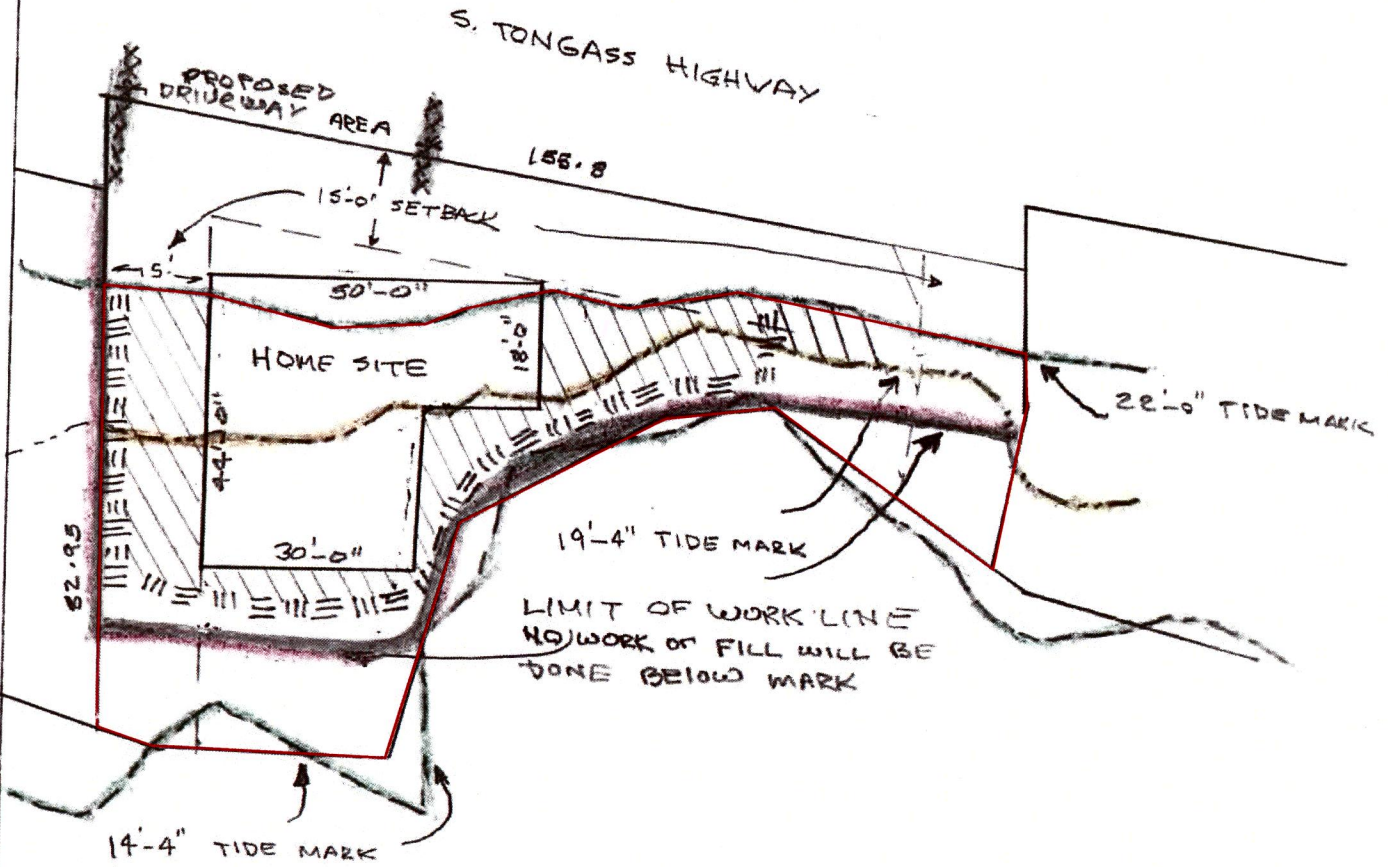 S. TONGASS HIGHWAY
PROPOSED
DRIVEWAY AREA
155.8
15'-0" SETBACK
5'
50'-0"
18'-0"
HOME SITE
22'-0" TIDE MARK
44'-0"
82.95
30'-0"
19'-4" TIDE MARK
LIMIT OF WORK LINE
NO WORK OF FILL WILL BE
DONE BELOW MARK
14'-4" TIDE MARK